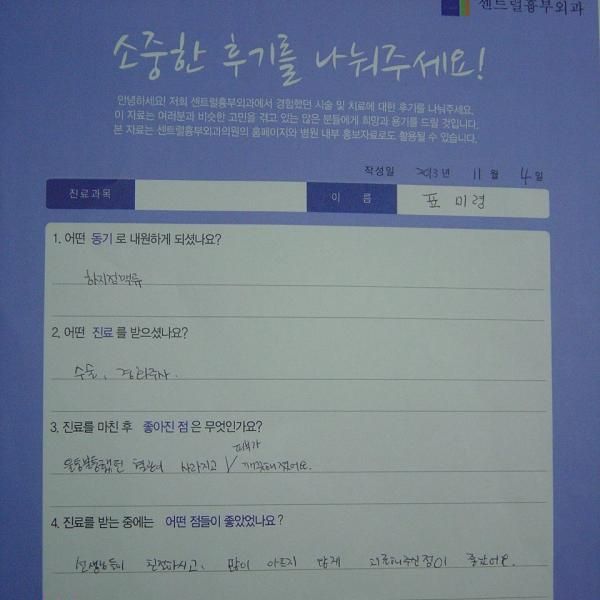 센트럴흉부외과
소중한 후기를 나눠주세요!
안녕하세요! 저희 센트럴흉부외과에서 경험했던 시술 및 치료에 대한 후기를 나눠주세요.
이 자료는 여러분과 비슷한 고민을 겪고 있는 많은 분들에게 희망과 용기를 드릴 것입니다.
본 자료는 센트럴흉부외과의원의 홈페이지와 병원 내부 홍보자료로도 활용될 수 있습니다.
작성일 2013년 11월 4일
진료과목 이 름 표 미령
1. 어떤 동기 로 내원하게 되셨나요?
하지정맥류
2. 어떤 진료 를 받으셨나요?
수술, 경화주사.
3. 진료를 마친 후 좋아진 점 은 무엇인가요?
피부가
울퉁불퉁했던 혈관이 사라지고 깨끗해졌어요.
4. 진료를 받는 중에는 어떤 점들이 좋았었나요?
선생님들이 친절하시고, 많이 아프지 않게 치료해주신점이 좋았어요.